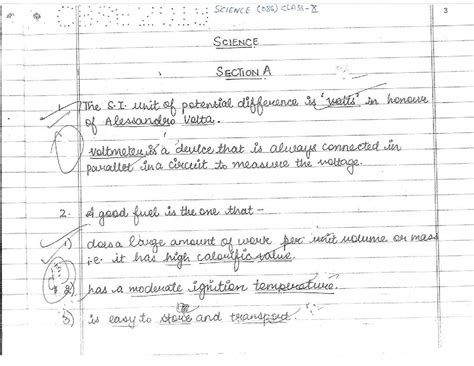 CBSE 2019 SCIENCE (086) CLASS-X
3
SCIENCE
SECTION A
1. The S.I. unit of potential difference is "volts" in honour
of Alessandro Volta.
Voltmeter is a device that is always connected in
parallel in a circuit to measure the voltage.
2. A good fuel is the one that -
1) does a large amount of work per unit volume or mass
i.e. it has high calorific value.
2) has a moderate ignition temperature.
3) is easy to store and transport.